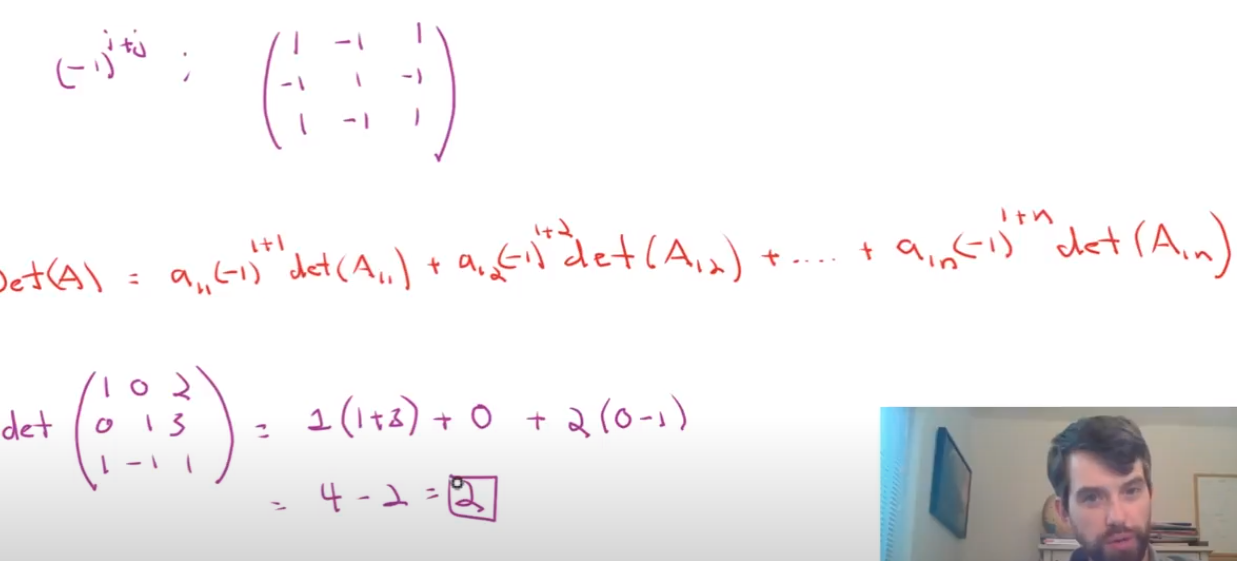 (-1)^{i+j} ; ( 1 -1 1
-1 1 -1
1 -1 1 )
Det(A) = a_{11}(-1)^{1+1} det(A_{11}) + a_{12}(-1)^{1+2} det(A_{12}) + .... + a_{1n}(-1)^{1+n} det(A_{1n})
det ( 1 0 2
0 1 3
1 -1 1 ) = 1(1+3) + 0 + 2(0-1)
= 4 - 2 = 2